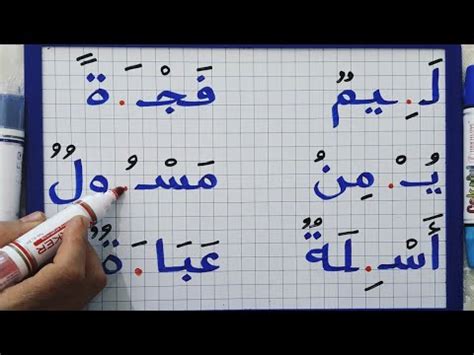 لَـ.ِيمٌ فَجْـ.َةً
يُـ.ْمِنُ مَسْـ.ُولٌ
أَسْـ.ِلَةٌ عَبَا.َةٌ